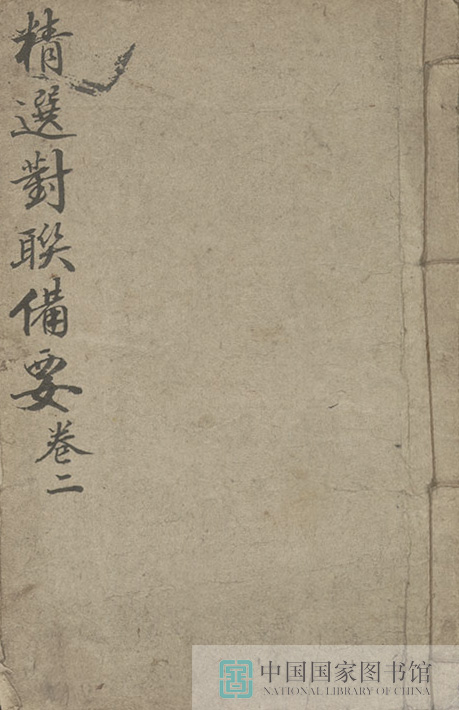 精選對聯備要 卷二
中国国家图书馆
NATIONAL LIBRARY OF CHINA